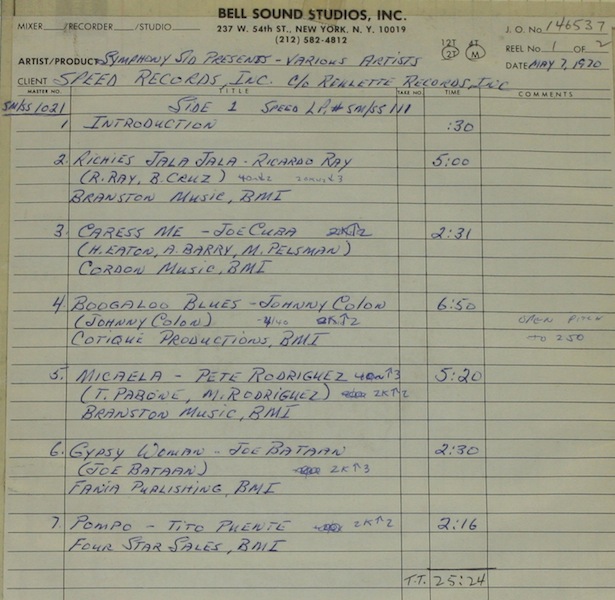 BELL SOUND STUDIOS, INC.
237 W. 54th ST., NEW YORK, N. Y. 10019
(212) 582-4812
MIXER /RECORDER /STUDIO
12T 6T
2T M
J. O. No. 146537
REEL No. 1 OF 2
ARTIST/PRODUCT SYMPHONY SID PRESENTS - VARIOUS ARTISTS
DATE MAY 7, 1970
CLIENT SPEED RECORDS, INC. C/O ROULETTE RECORDS, INC
MASTER NO. TITLE TAKE NO. TIME COMMENTS
SM/SS 1021 SIDE 1 SPEED LP, # SM/SS 111
1 INTRODUCTION :30
2. RICHIES JALA JALA - RICARDO RAY 5:00
(R. RAY, B. CRUZ)
BRANSTON MUSIC, BMI
3. CARESS ME - JOE CUBA 2K↑2 2:31
(H. EATON, A. BARRY, M. PELSMAN)
CORDON MUSIC, BMI
4. BOOGALOO BLUES - JOHNNY COLON 6:50
(JOHNNY COLON) 2K↑2 OPEN PITCH
COTIQUE PRODUCTIONS, BMI TO 250
5. MICAELA - PETE RODRIGUEZ 5:20
(T. PABONE, M. RODRIGUEZ) 2K↑2
BRANSTON MUSIC, BMI
6. GYPSY WOMAN - JOE BATAAN 2:30
(JOE BATAAN) 2K↑3
FANIA PUBLISHING, BMI
7. POMPO - TITO PUENTE 2K↑2 2:16
FOUR STAR SALES, BMI
T.T. 25:24